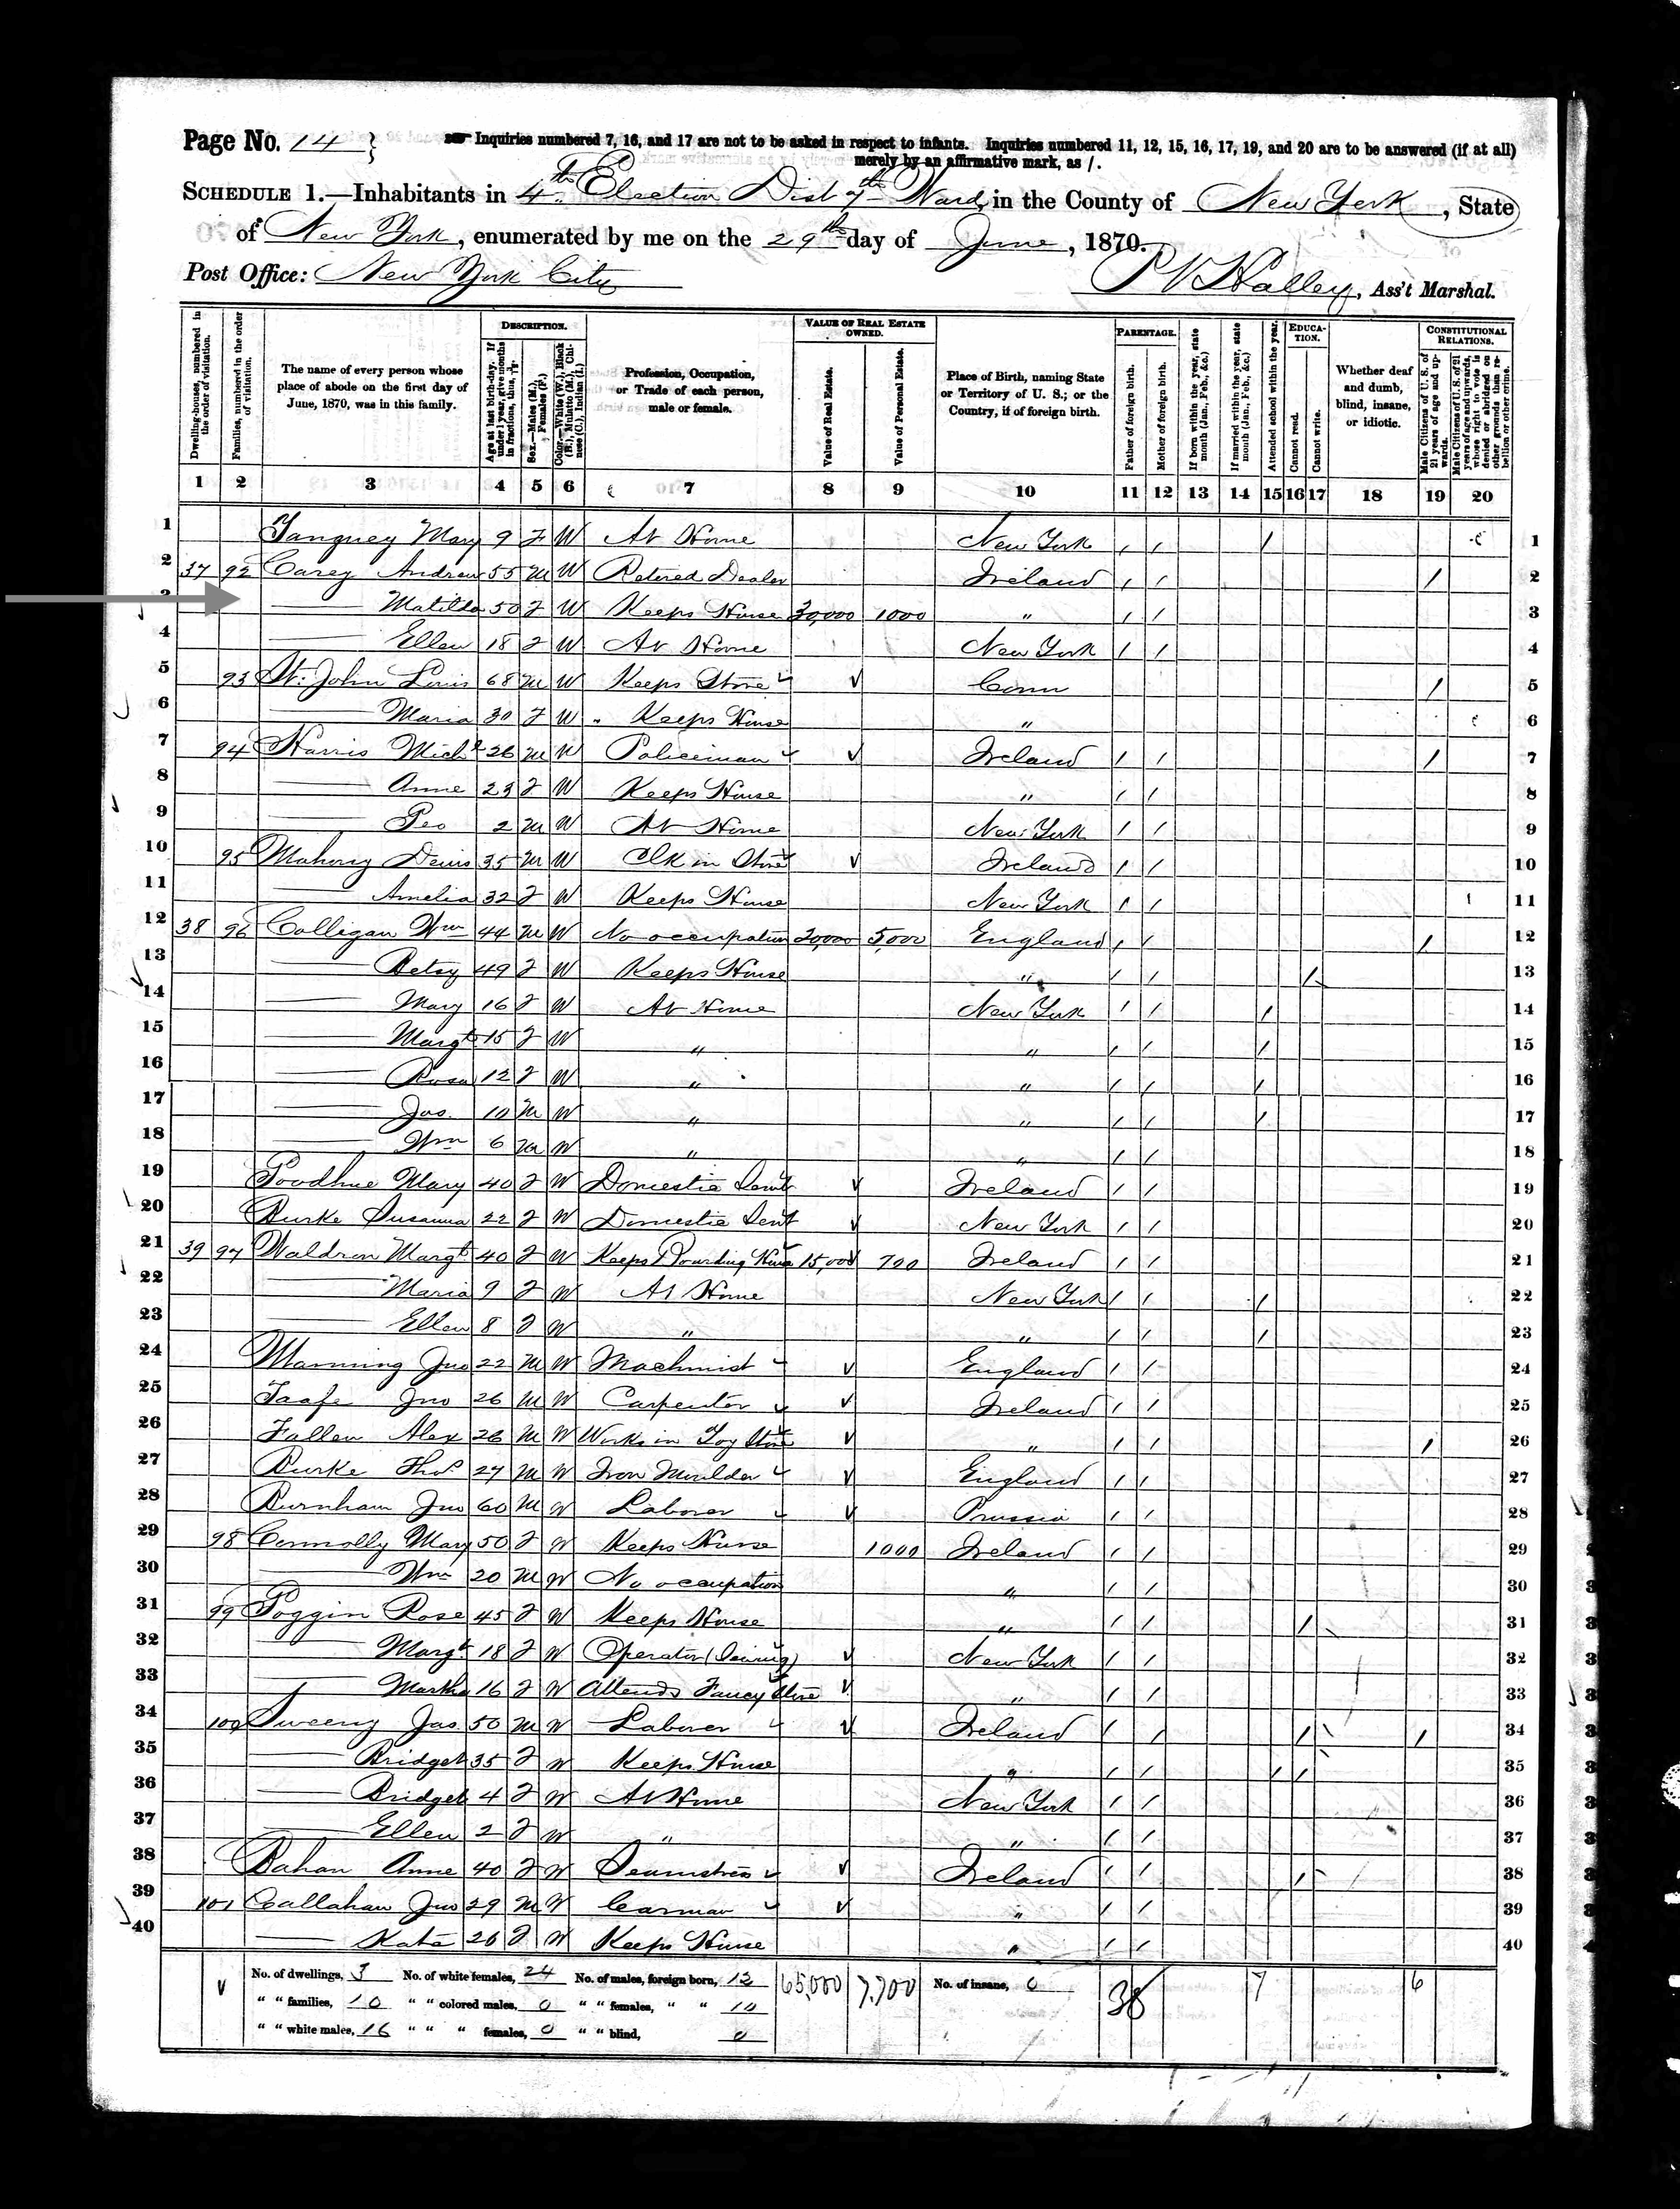 Page No. 14 } Inquiries numbered 7, 16, and 17 are not to be asked in respect to infants. Inquiries numbered 11, 12, 15, 16, 17, 19, and 20 are to be answered (if at all)
merely by an affirmative mark, as /.
SCHEDULE 1.—Inhabitants in 4th Election Dist 7th Ward, in the County of New York, State
of New York, enumerated by me on the 29th day of June, 1870.
Post Office: New York City
Halley, Ass't Marshal.
Dwelling-houses, numbered in the order of visitation.
Families, numbered in the order of visitation.
The name of every person whose place of abode on the first day of June, 1870, was in this family.
DESCRIPTION.
Age at last birth-day. If under 1 year, give months in fractions, thus,
Sex.—Males (M.), Females (F.)
Color.—White (W.), Black (B.), Mulatto (M.), Chinese (C.), Indian (I.)
Profession, Occupation, or Trade of each person, male or female.
VALUE OF REAL ESTATE OWNED.
Value of Real Estate.
Value of Personal Estate.
Place of Birth, naming State or Territory of U. S.; or the Country, if of foreign birth.
PARENTAGE.
Father of foreign birth.
Mother of foreign birth.
If born within the year, state month (Jan., Feb., &c.)
If married within the year, state month (Jan., Feb., &c.)
Attended school within the year.
EDUCATION.
Cannot read.
Cannot write.
Whether deaf and dumb, blind, insane, or idiotic.
CONSTITUTIONAL RELATIONS.
Male Citizens of U. S. of 21 years of age and upwards.
Male Citizens of U. S. of 21 years of age and upwards, whose right to vote is denied or abridged on other grounds than rebellion or other crime.
1 2 3 4 5 6 7 8 9 10 11 12 13 14 15 16 17 18 19 20
1 Tanguey Mary 9 F W At Home New York / / / 1
2 37 92 Carey Andrew 55 M W Retered Dealer Ireland / / / 2
3 —— Matilda 50 F W Keeps House 30,000 1000 " / / 3
4 —— Ellen 18 F W At Home New York / / 4
5 93 St. John Louis 68 M W Keeps Store Conn / 5
6 —— Maria 30 F W Keeps House " 6
7 94 Harris Michl 26 M W Policeman Ireland / / / 7
8 —— Anne 23 F W Keeps House " / / 8
9 —— Geo 2 M W At Home New York / / 9
10 95 Mahony Denis 35 M W Clk in Store Ireland / / 10
11 —— Amelia 32 F W Keeps House New York / / 11
12 38 96 Colligan Wm 44 M W No occupation 20,000 5,000 England / / / 12
13 —— Betsy 49 F W Keeps House " / / / 13
14 —— Mary 16 F W At Home New York / / / 14
15 —— Margt 15 F W " " / / / 15
16 —— Rosa 12 F W " " / / / 16
17 —— Jas. 10 M W " " / / / 17
18 —— Wm 6 M W " " / / 18
19 Goodhue Mary 40 F W Domestic Servt Ireland / / 19
20 Burke Susanna 22 F W Domestic Servt New York / / 20
21 39 97 Waldron Margt 40 F W Keeps Boarding House 15,000 700 Ireland / / 21
22 —— Maria 9 F W At Home New York / / / 22
23 —— Ellen 8 F W " " / / / 23
24 Manning Jno 22 M W Machinist England / / 24
25 Taafe Jno 26 M W Carpenter Ireland / / 25
26 Fallen Alex 26 M W Works in Toy Store " / / / 26
27 Burke Thos 27 M W Iron Moulder England / / 27
28 Burnham Jno 60 M W Laborer Prussia / / 28
29 98 Connolly Mary 50 F W Keeps House 1000 Ireland / / 29
30 —— Wm 20 M W No occupation " / / 30
31 99 Goggin Rose 45 F W Keeps House " / / / 31
32 —— Margt 18 F W Operator (Sewing) New York / / 32
33 —— Martha 16 F W Attends Fancy Store " / / 33
34 100 Sweeny Jas 50 M W Laborer Ireland / / / / 34
35 —— Bridget 35 F W Keeps House " / / / / 35
36 —— Bridget 4 F W At Home New York / / 36
37 —— Ellen 2 F W " " / / 37
38 Bahan Anne 40 F W Seamstress Ireland / / / 38
39 101 Callahan Jno 29 M W Carman " / / 39
40 —— Kate 26 F W Keeps House " / / 40
No. of dwellings, 3 No. of white females, 24 No. of males, foreign born, 12 65,000 7,700 No. of insane, 0 38 7 6
" " families, 10 " " colored males, 0 " " females, " " 10
" " white males, 16 " " " females, 0 " " blind, 0